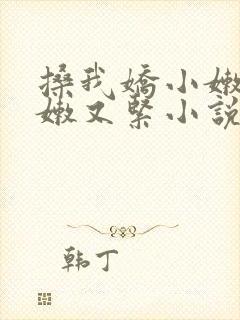 搡我嬌小嫩
嫩又緊小說
韩丁